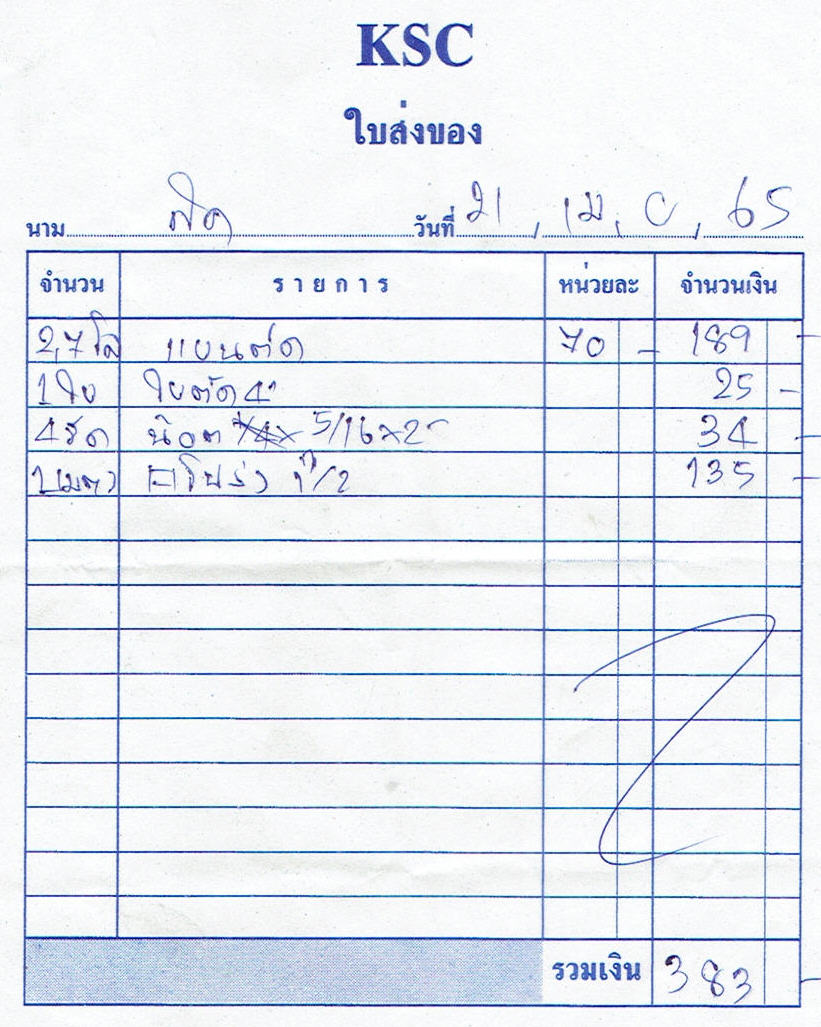 KSC
ใบส่งของ
นาม สด วันที่ 21, เม, ย, 65
จำนวน รายการ หน่วยละ จำนวนเงิน
2,7 โล แผ่นตัด 70 - 189 -
1 ใบ ใบตัด 4" 25 -
4 ชุด น๊อต 5/16x2" 34 -
1 เมตร โปร่ง 1"/2 135 -
รวมเงิน 383 -